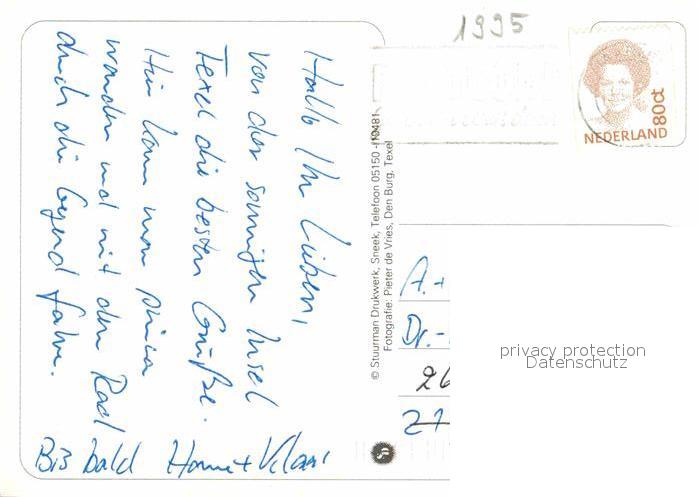 Hallo Ihr Lieben,
von der sonnigen Insel
Texel die besten Grüße.
Hier kann man prima
wandern und mit dem Rad
durch die Gegend fahren.
Bis bald Hanne + Klaus
© Stuurman Drukwerk, Sneek, Telefoon 05150-19481
Fotografie: Pieter de Vries, Den Burg, Texel
1995
NEDERLAND
80ct
A. +
Dr.-
26
27
privacy protection
Datenschutz